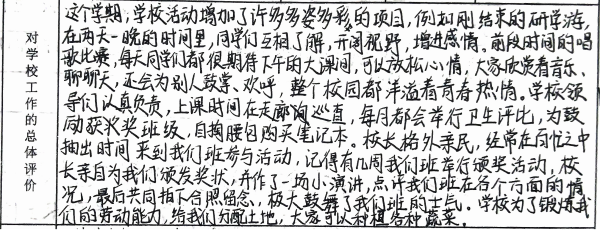 对学校工作的总体评价
这个学期,学校活动增加了许多多姿多彩的项目,例如刚结束的研学游,
在两天一晚的时间里,同学们互相了解,开阔视野,增进感情。前段时间的唱
歌比赛,每天同学们都很期待下午的大课间,可以放松心情,大家欣赏着音乐、
聊聊天,还会为别人鼓掌、欢呼,整个校园都洋溢着青春热情。学校领
导们认真负责,上课时间在走廊间巡查,每月都会举行卫生评比,为鼓
励获奖奖班级,自掏腰包购买笔记本。校长格外亲民,经常在百忙之中
抽出时间来到我们班参与活动,记得有几周我们班举行颁奖活动,校
长亲自为我们颁发奖状,并作了一场小演讲,点评我们班在各个方面的情
况,最后共同拍下合照留念,极大鼓舞了我们班的士气。学校为了锻炼我
们的劳动能力,给我们分配土地,大家可以种植各种蔬菜。